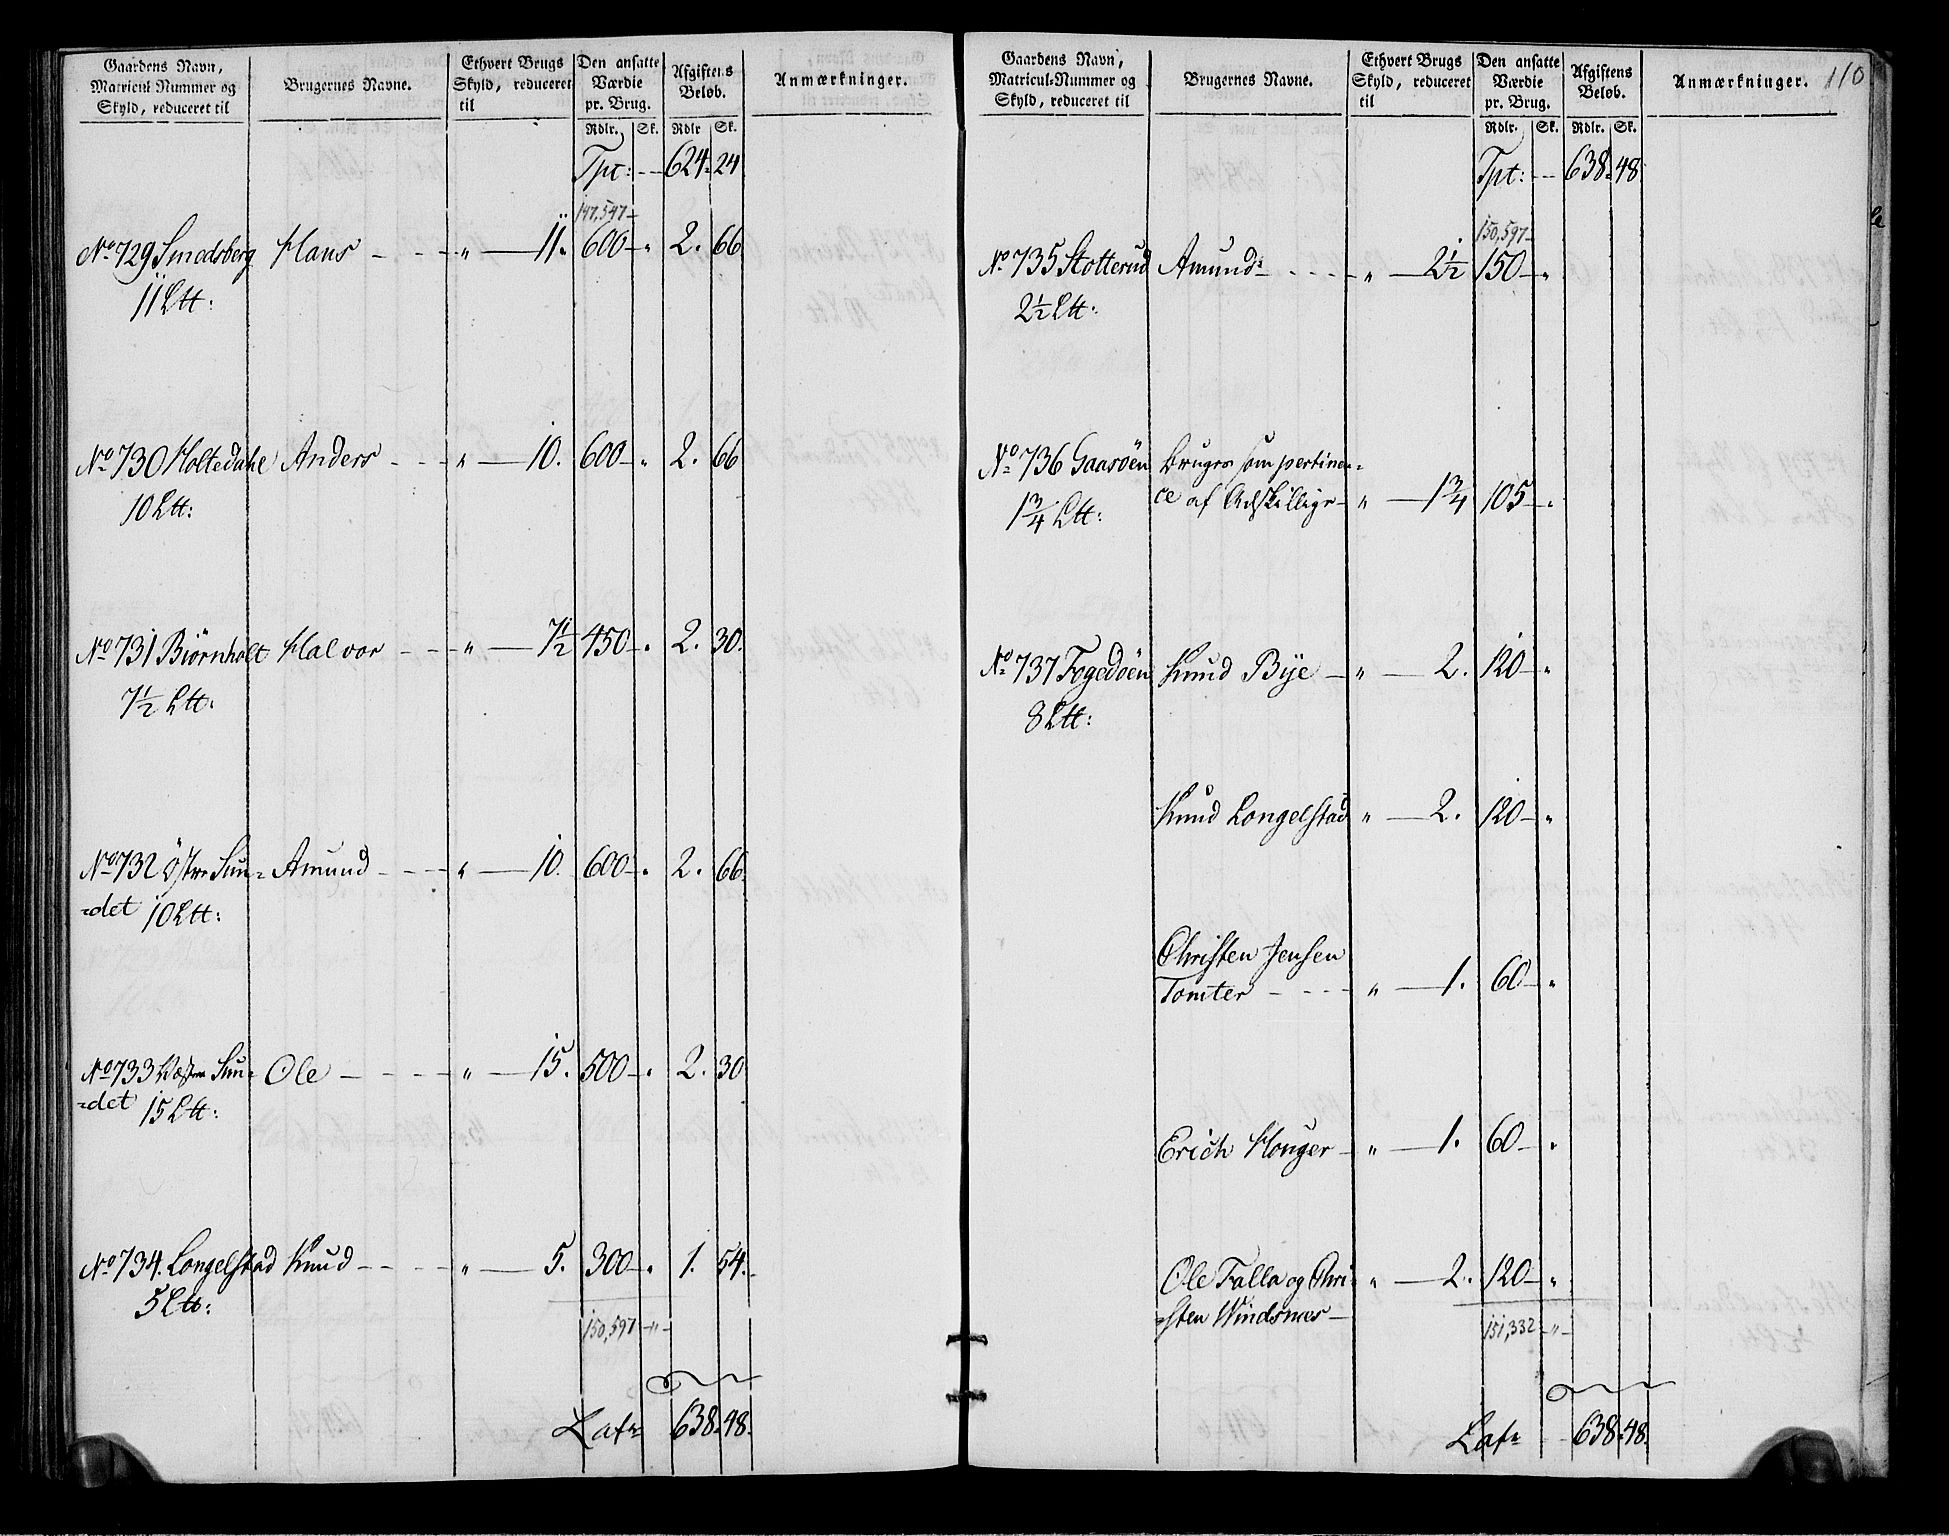 Gaardens Navn, Matricul Nummer og Skyld, reduceret til | Brugernes Navne. | Ethvert Brugs Skyld, reduceret til | Den ansatte Værdie pr. Brug. | Afgiftens Beløb. | Anmærkninger.
Rdlr. Sk. Rdlr Sk.
Tpt: - - 624. 24
147,547 -
No 729 Smedsberg Hans - - - " — 11. 600 - " 2. 66.
11 Ltt:
No 730 Holtedahl Anders - - - " — 10. 600 - " 2. 66
10 Ltt:
No 731 Biørnholt Halvor - - - " — 7½ 450 - " 2. 30.
7½ Ltt.
No 732 Østre Sun= Amund - - - " — 10. 600 - " 2. 66.
=det 10 Ltt:
No 733 Væstre Sun= Ole - - - - " — 15. 500 - " 2. 30
=det 15 Ltt:
No 734. Longelstad Knud - - - - " — 5. 300 - " 1. 54.
5 Ltt:
150,597 - " -
Latr 638. 48.
110
Gaardens Navn, Matricul-Nummer og Skyld, reduceret til | Brugernes Navne. | Ethvert Brugs Skyld, reduceret til | Den ansatte Værdie pr. Brug. | Afgiftens Beløb. | Anmærkninger.
Rdlr. Sk. Rdlr. Sk.
Tpt: - - 638. 48.
150,597 -
No 735 Stotterud Amund: - - - - " — 2½ 150 - "
2½ Ltt.
No 736 Gaasøen Bruges som pertinen=
1¾ Ltt: ce af Adskillige - " — 1¾ 105 - "
No 737 Fogedøen Knud Bye - " — 2. 120 - "
8 Ltt:
Knud Longelstad " — 2. 120 - "
Christen Jensen
Tomter - - - - " — 1. 60 - "
Erich Houger - " — 1. 60 - "
Ole Falla og Chri= " — 2. 120 - "
=sten Windsnæs -
151,332 - " -
Latr 638. 48.